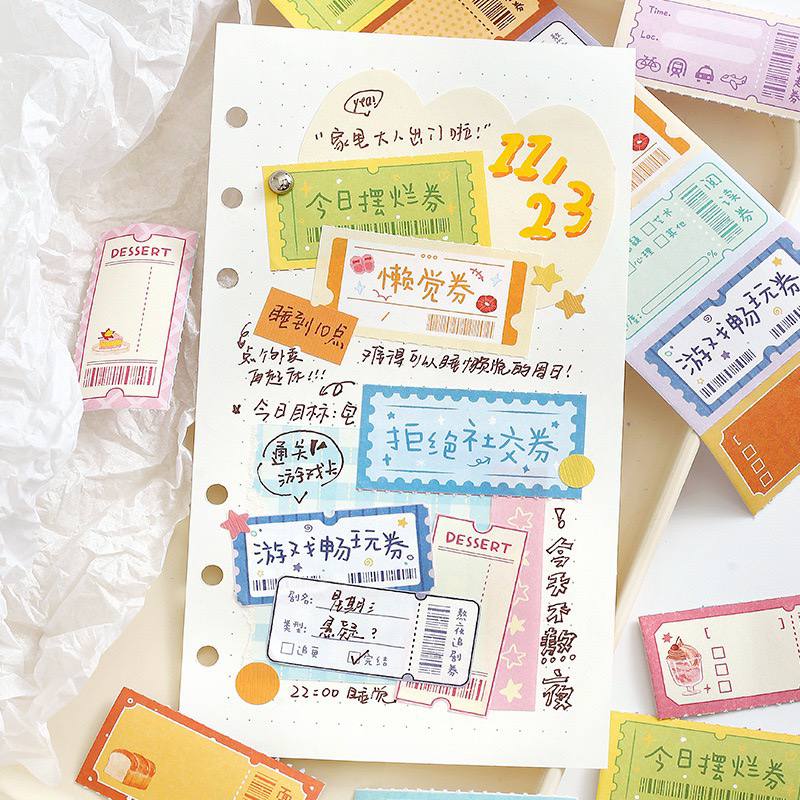 Time.
Loc.
yea!
"家里大人出门啦!"
11,
23
今日摆烂券
懒觉券
睡到10点
点个外卖
再起床!!!
难得可以睡懒觉的周日!
今日目标:
拒绝社交券
通关
游戏卡
游戏畅玩券
DESSERT
剧名: 星期三
类型: 悬疑?
追更
完结
熬夜追剧券
22:00 睡觉
今天不熬夜
DESSERT
阅读券
艺术
心理
其他
游戏畅玩券
今日摆烂券